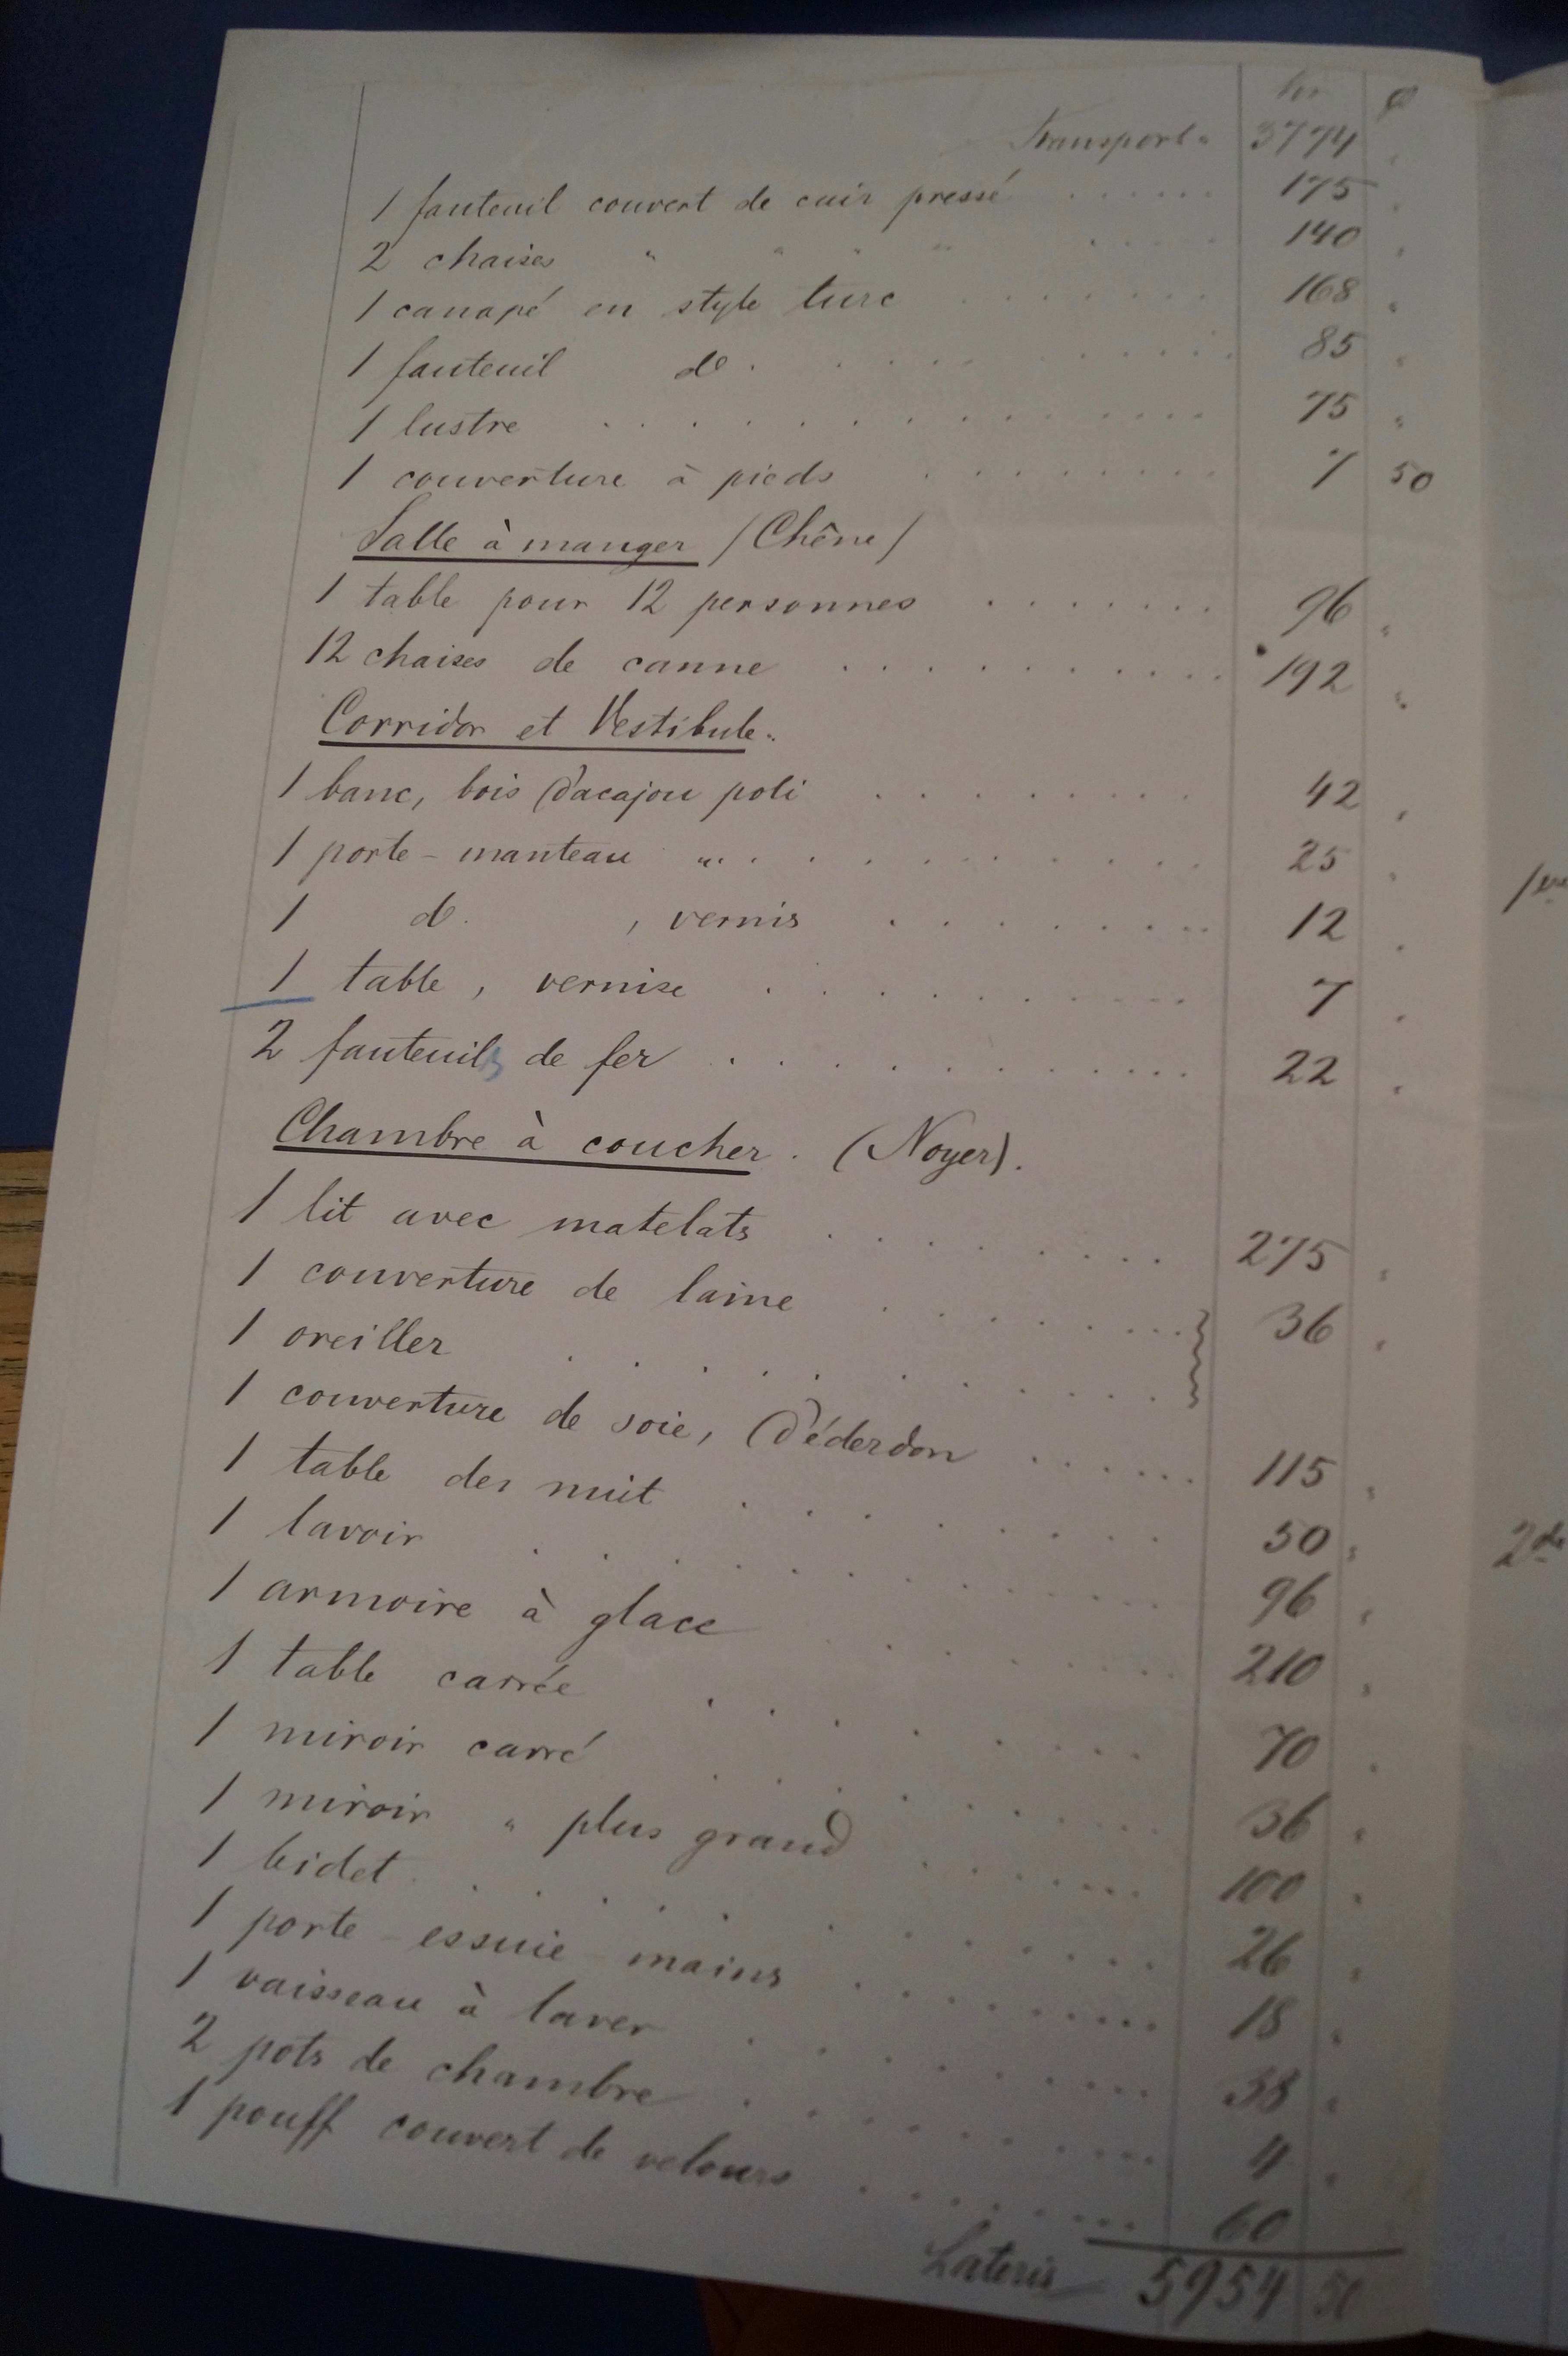 kr ø
Transport. 3774 "
1 fauteuil couvert de cuir pressé ...... 175 "
2 chaises " " " " ..... 140 "
1 canapé en style turc ........ 168 "
1 fauteuil do. ........... 85 "
1 lustre ............... 75 "
1 couverture à pieds ......... 7 50
Salle à manger /Chêne/
1 table pour 12 personnes ....... 96 "
12 chaises de canne .......... 192 "
Corridor et Vestibule.
1 banc, bois d'acajou poli ......... 42 "
1 porte-manteau " ........... 25 "
1 do. , vernis ........ 12 "
1 table, vernise ........... 7 "
2 fauteuils de fer ............ 22 "
Chambre à coucher. (Noyer).
1 lit avec matelats ......... 275 "
1 couverture de laine ......... 36 "
1 oreiller ............
1 couverture de soie, d'éderdon ...... 115 "
1 table de nuit ......... 50 "
1 lavoir ............ 96 "
1 armoire à glace ........ 210 "
1 table carrée ......... 70 "
1 miroir carré .......... 36 "
1 miroir " plus grand ....... 100 "
1 bidet ............ 26 "
1 porte-essuie-mains ......... 18 "
1 vaisseau à laver .......... 38 "
2 pots de chambre .......... 4 "
1 pouff couvert de velours ........ 60
Lateris 5954 50
1ere
2de